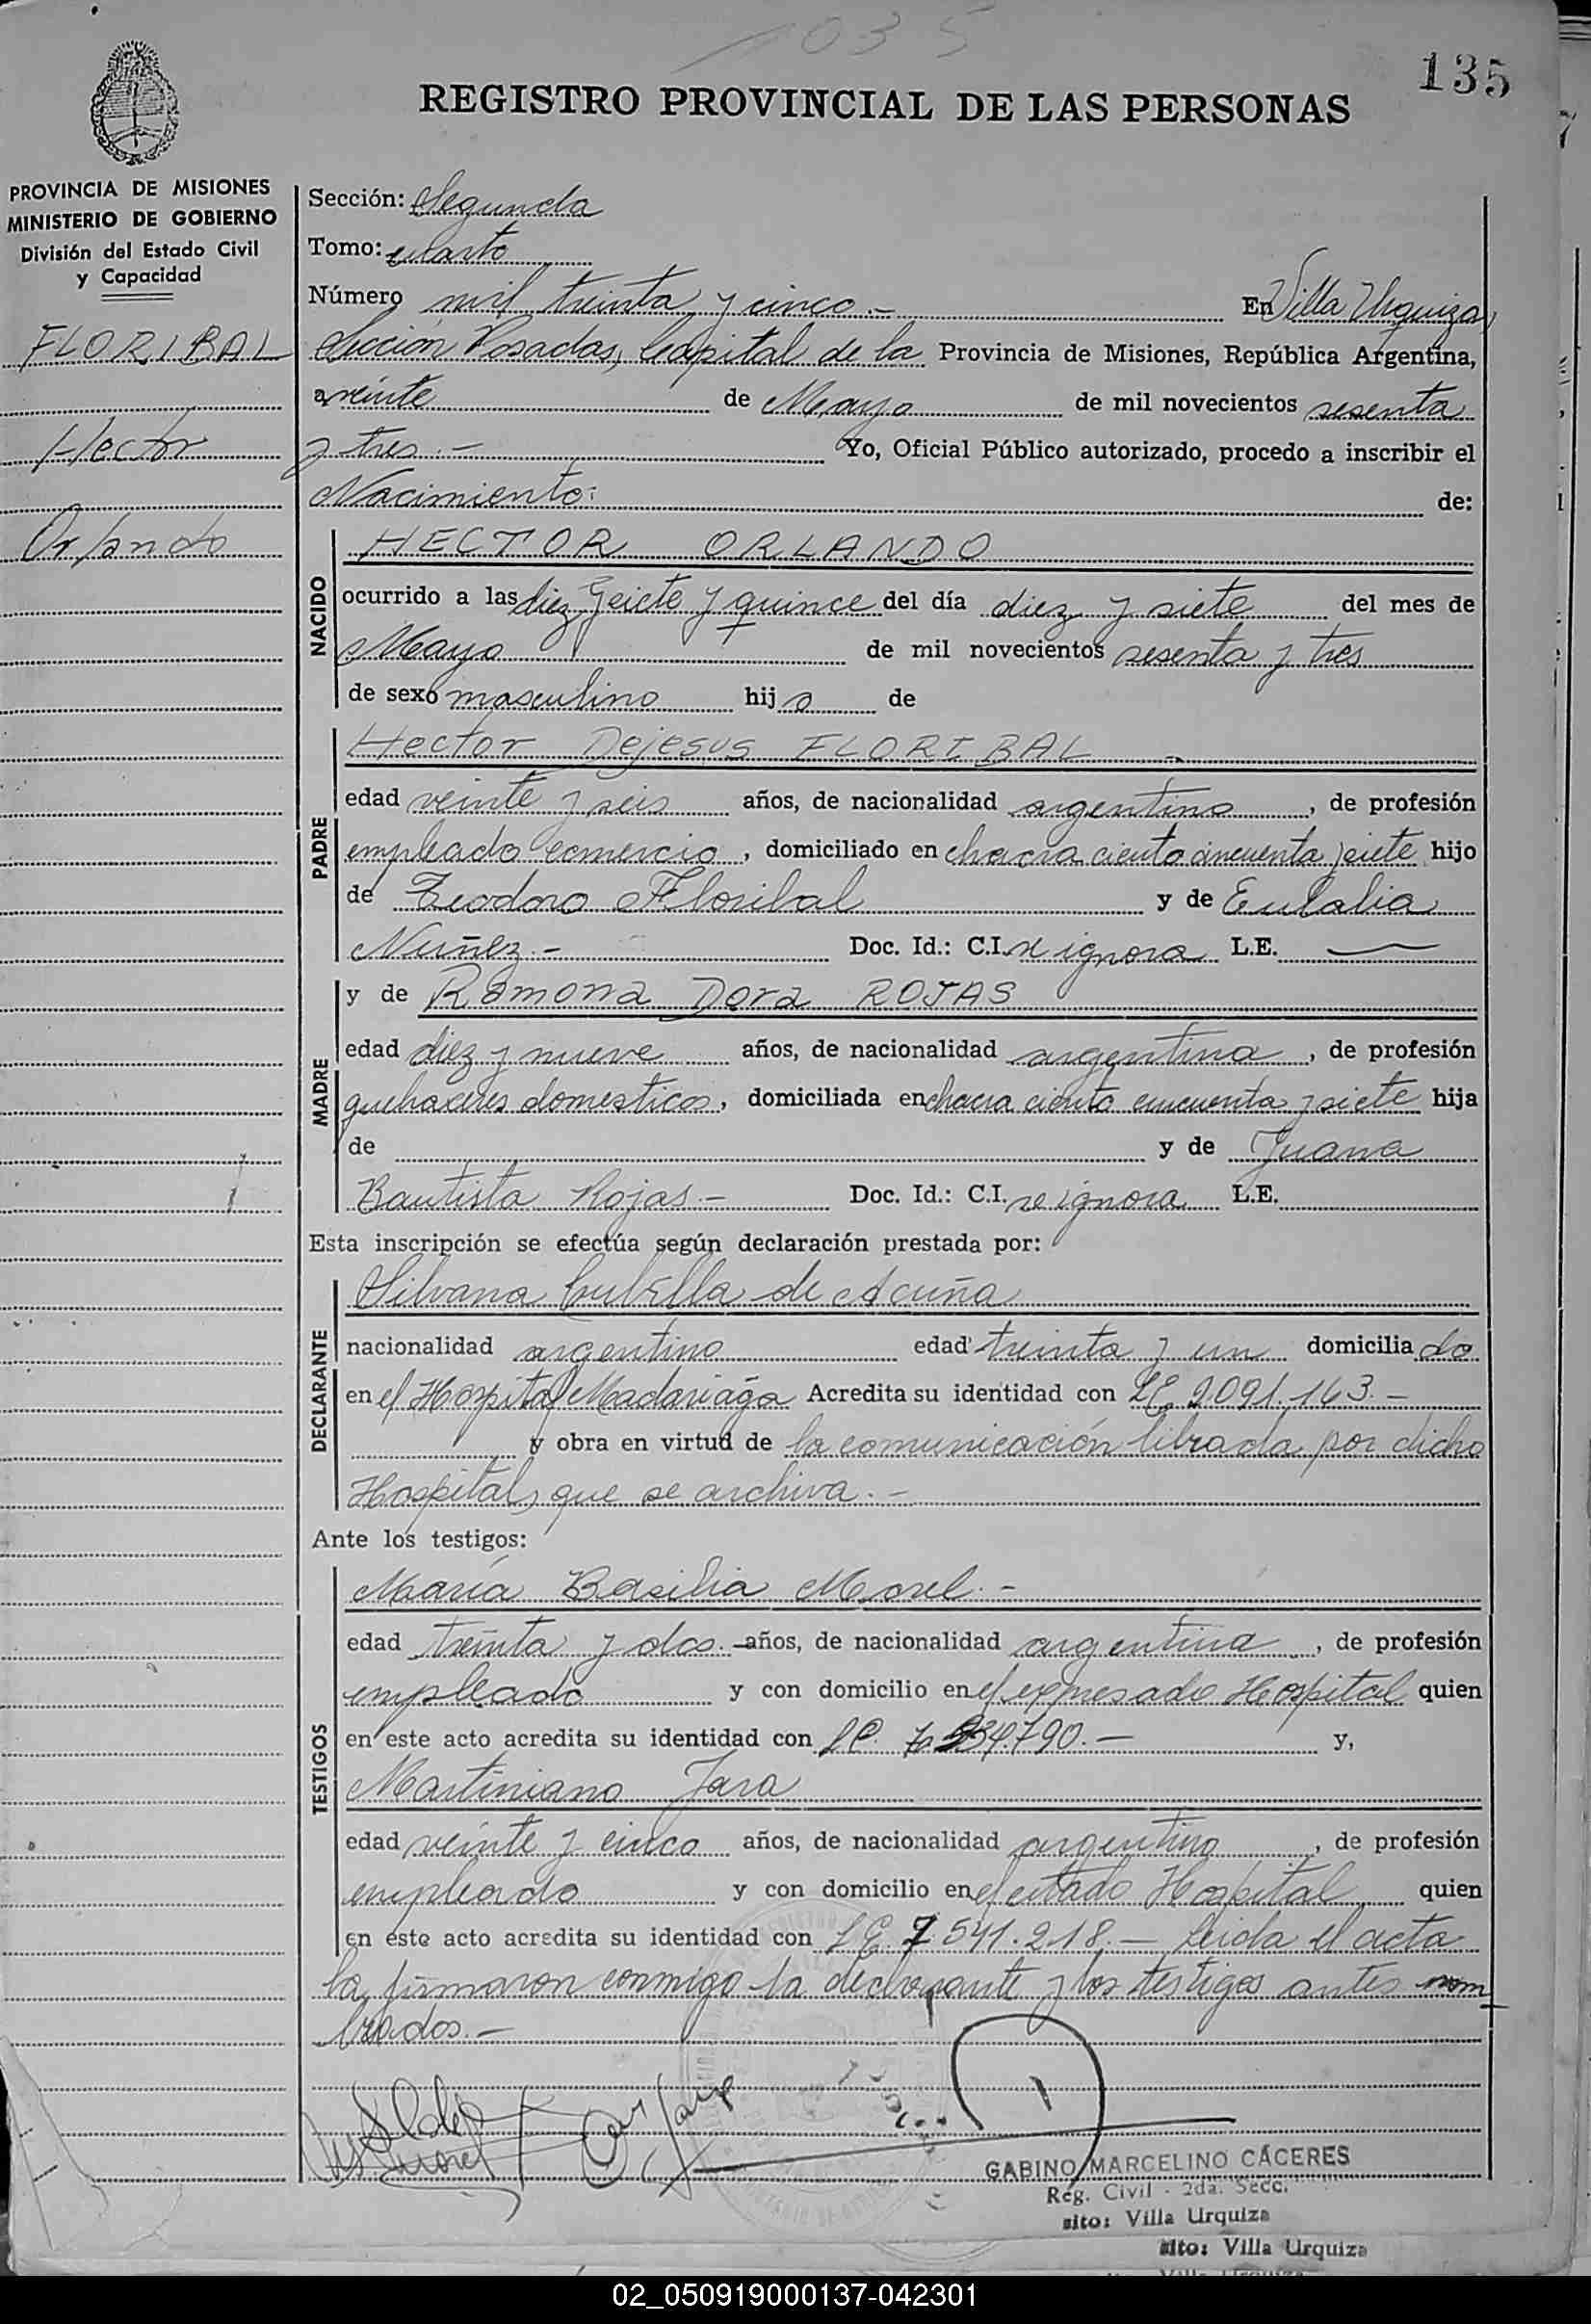 1035
135
REGISTRO PROVINCIAL DE LAS PERSONAS
PROVINCIA DE MISIONES
MINISTERIO DE GOBIERNO
División del Estado Civil
y Capacidad
FLORIBAL
Hector
Orlando
Sección: Segunda
Tomo: cuarto
Número mil treinta y cinco.- En Villa Urquiza,
Sección Posadas, Capital de la Provincia de Misiones, República Argentina,
a veinte de Mayo de mil novecientos sesenta
y tres.- Yo, Oficial Público autorizado, procedo a inscribir el
Nacimiento: de:
NACIDO
HECTOR ORLANDO
ocurrido a las diez y siete y quince del día diez y siete del mes de
Mayo de mil novecientos sesenta y tres
de sexo masculino hijo de
PADRE
Hector Dejesus FLORIBAL
edad veinte y seis años, de nacionalidad argentino, de profesión
empleado comercio, domiciliado en chacra ciento cincuenta y siete hijo
de Teodoro Floribal y de Eulalia
Nuñez.- Doc. Id.: C.I. se ignora L.E. —
MADRE
y de Ramona Dora ROJAS
edad diez y nueve años, de nacionalidad argentina, de profesión
quehaceres domesticos, domiciliada en chacra ciento cincuenta y siete hija
de y de Juana
Bautista Rojas.- Doc. Id.: C.I. se ignora L.E.
Esta inscripción se efectúa según declaración prestada por:
DECLARANTE
Silvana de Acuña
nacionalidad argentino edad treinta y un domiciliado
en el Hospital Madariaga Acredita su identidad con LE. 2.091.163.-
y obra en virtud de la comunicación librada por dicho
Hospital, que se archiva.-
Ante los testigos:
TESTIGOS
María Basilia Morel.-
edad treinta y dos.- años, de nacionalidad argentina, de profesión
empleado y con domicilio en el expresado Hospital quien
en este acto acredita su identidad con y,
Martiniano Jara
edad veinte y cinco años, de nacionalidad argentino, de profesión
empleado y con domicilio en el citado Hospital quien
en este acto acredita su identidad con LE. 7.541.218.- Leida el acta
la firmaron conmigo la declarante y los testigos antes nom
brados.-
GABINO MARCELINO CÁCERES
Reg. Civil - 2da. Secc.
sito: Villa Urquiza
sito: Villa Urquiza
02_050919000137-042301